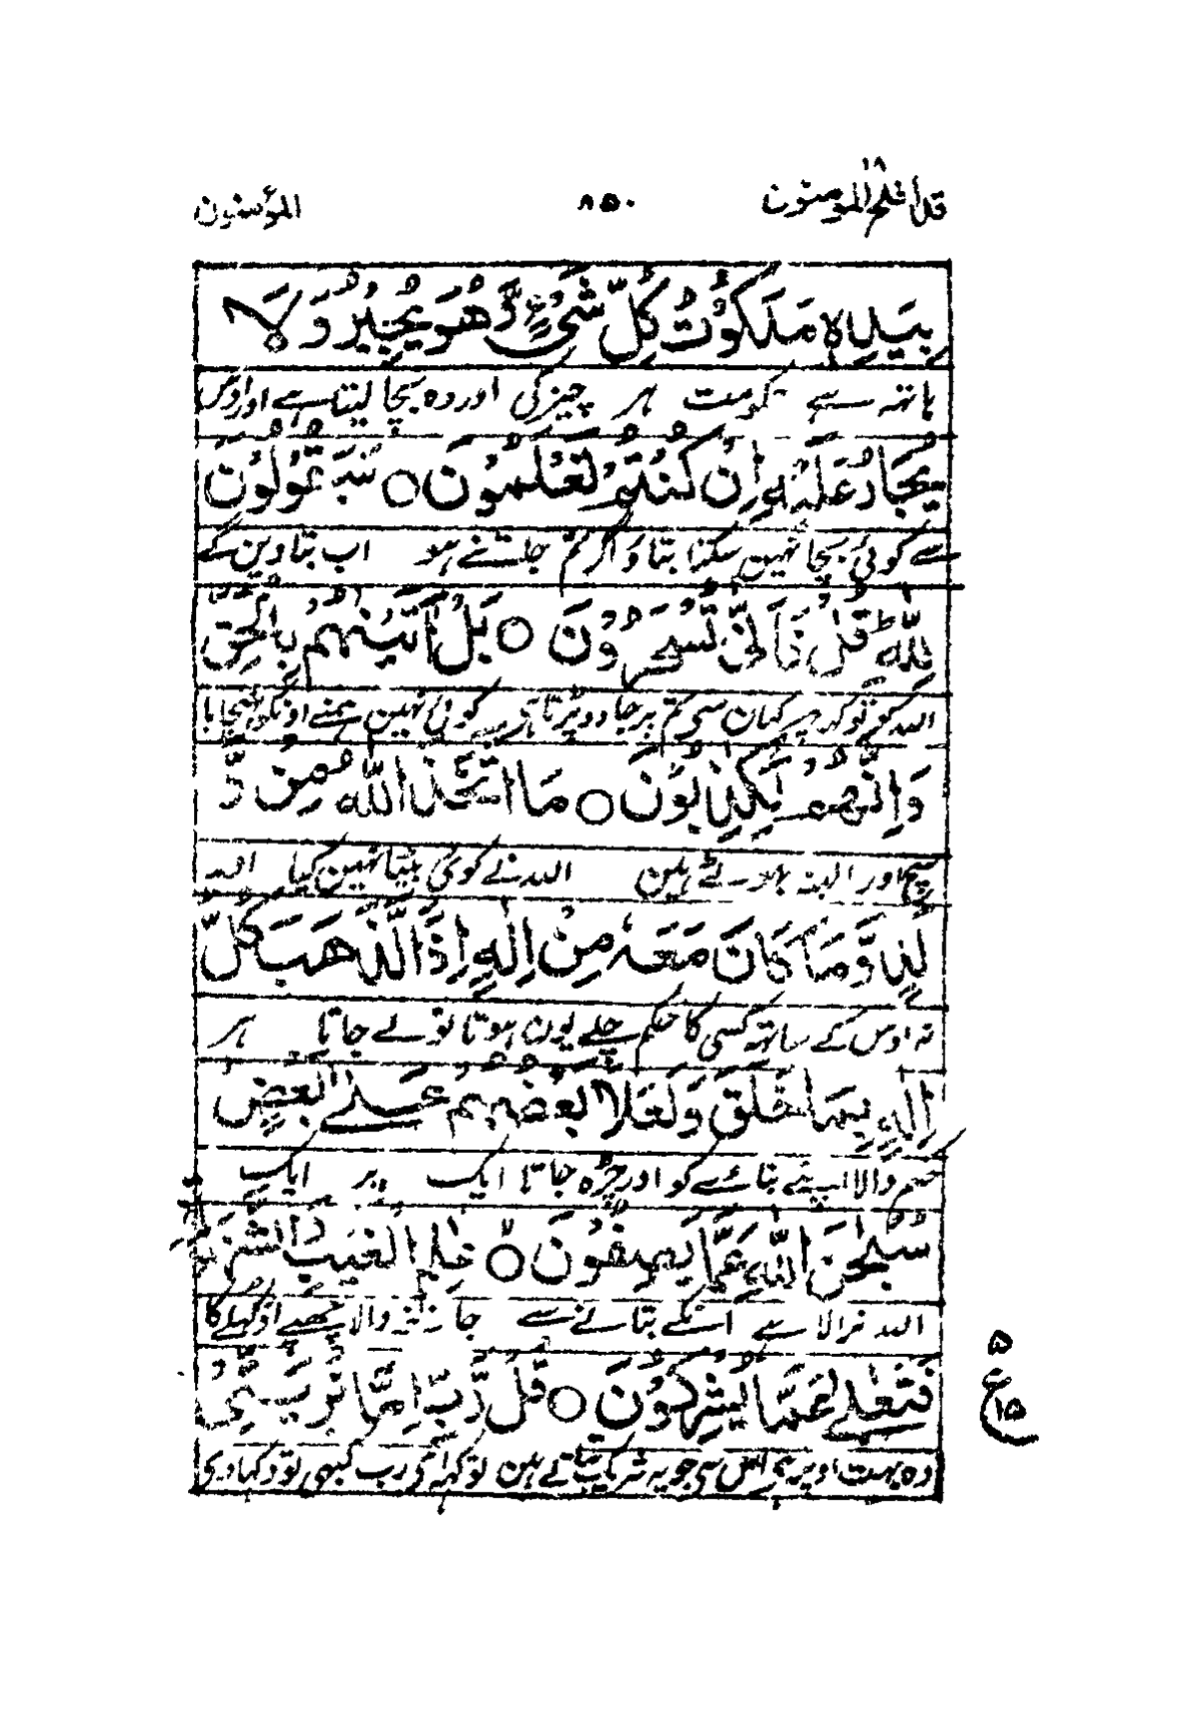 قد أفلح المومنون ١٨
٨٥٠
المؤمنون
بِيَدِهٖ مَلَكُوْتُ كُلِّ شَیْءٍ وَّهُوَ يُجِيْرُ وَلَا
ہاتھ سے حکومت ہر چیز کی اور وہ بچا لیتا ہے اور اوس
يُجَارُ عَلَيْهِ اِنْ كُنْتُمْ تَعْلَمُوْنَ ○ سَيَقُوْلُوْنَ
سے کوئی بچا نہین سکتا بتاؤ اگر تم جانتے ہو اب بتاوین گے
لِلّٰهِ ؕ قُلْ فَاَنّٰی تُسْحَرُوْنَ ○ بَلْ اَتَيْنٰهُمْ بِالْحَقِّ
اللہ کو تو کہہ پھر کہان سی تم پر جادو پڑتا ہی کوئی نہین ہمنے اونکو پہنچایا
وَاِنَّهُمْ لَكٰذِبُوْنَ ○ مَا اتَّخَذَ اللّٰهُ مِنْ وَّ
سچ اور البتہ جھوٹے ہین اللہ نے کوئی بیٹا نہین کیا اللہ
لَدٍ وَّمَا كَانَ مَعَهٗ مِنْ اِلٰهٍ اِذًا لَّذَهَبَ كُلُّ
نہ اوس کے ساتھ کسی کا حکم چلے یون ہوتا تو لے جاتا ہر
اِلٰهٍ بِمَا خَلَقَ وَلَعَلَا بَعْضُهُمْ عَلٰے بَعْضٍ
حکم والا اپنے بنائے کو اور چڑہ جاتا ایک پر ایک
سُبْحٰنَ اللّٰهِ عَمَّا يَصِفُوْنَ ○ عٰلِمِ الْغَيْبِ وَالشَّهَادَةِ
اللہ نرالا ہے انکے بتانے سے جاننے والا چھپے اور کھلے کا
فَتَعٰلٰے عَمَّا يُشْرِكُوْنَ ○ قُلْ رَّبِّ اِمَّا تُرِيَنِّیْ
وہ بہت اوپر ہی اس سی جو یہ شریک بتاتے ہین تو کہہ ای رب کبھی تو دکھاوی
٥
ع
١٥